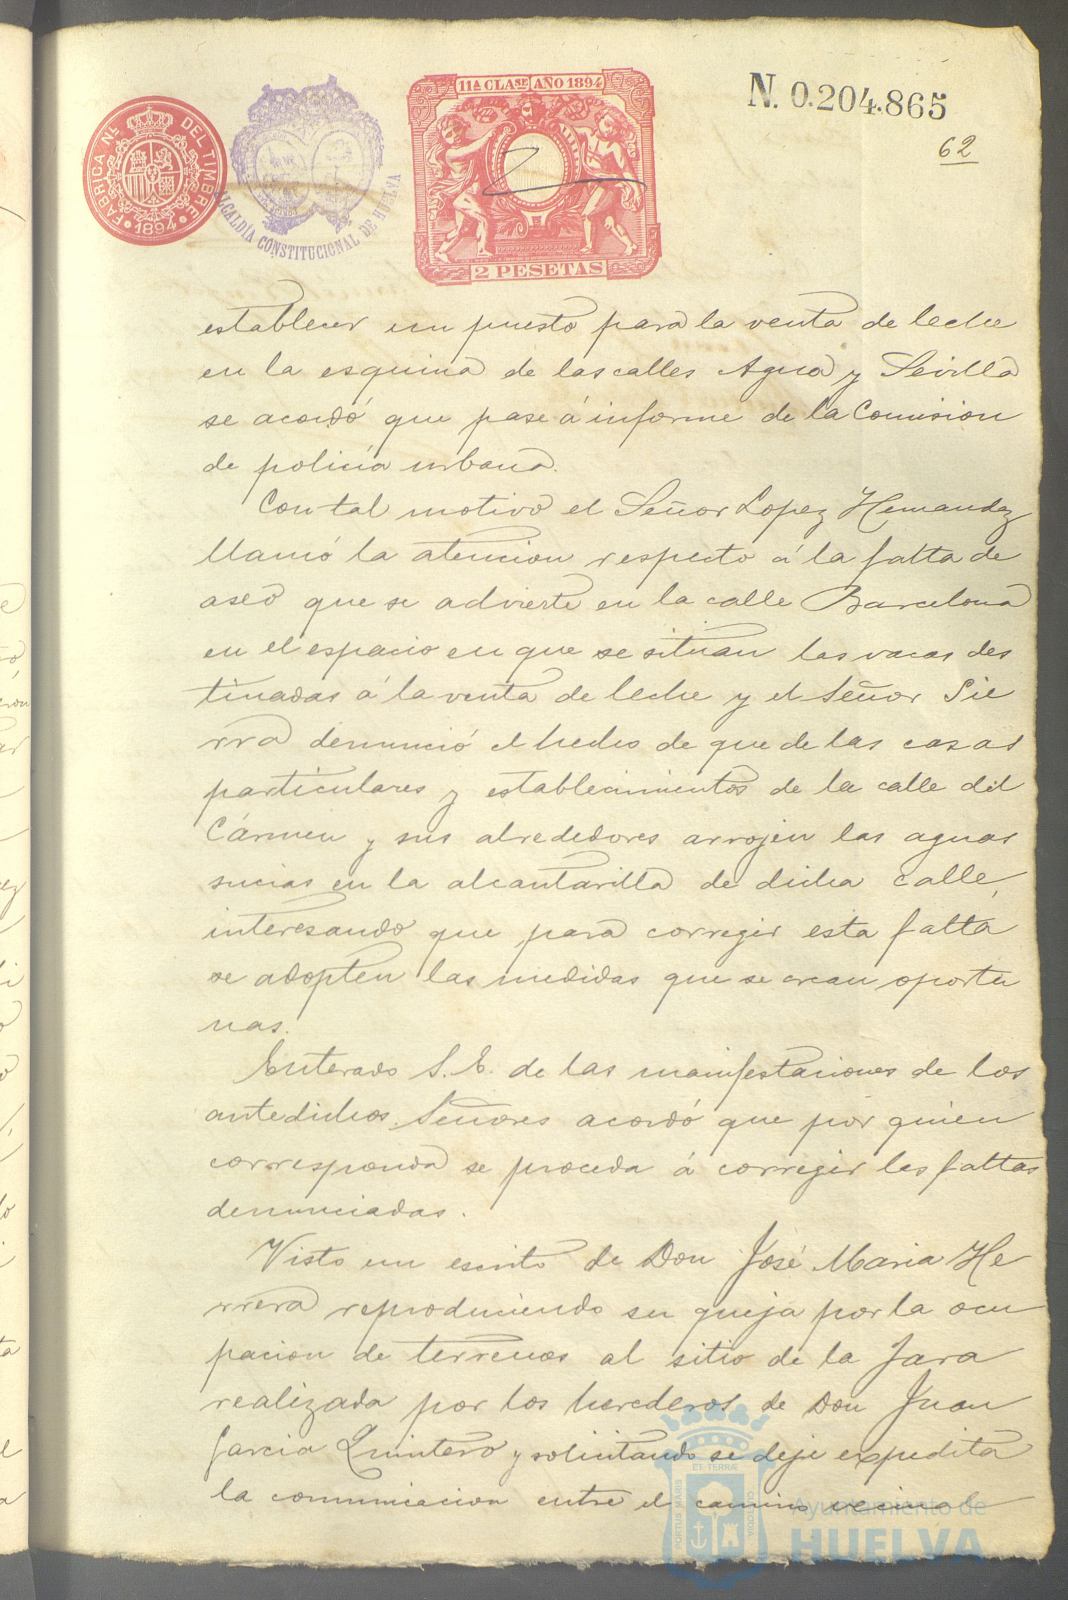 11ª CLASE AÑO 1894
N. 0.204.865
62
FABRICA NL. DEL TIMBRE
1894
ALCALDÍA CONSTITUCIONAL DE HUELVA
2 PESETAS
establecer un puesto para la venta de leche
en la esquina de las calles Agua y Sevilla
se acordó que pase á informe de la Comision
de policía urbana.
Con tal motivo el Señor Lopez Hernandez
llamó la atencion respecto á la falta de
aseo que se advierte en la calle Barcelona
en el espacio en que se situan las vacas des
tinadas á la venta de leche y el Señor Sie
rra denunció el hecho de que de las casas
particulares y establecimientos de la calle del
Cármen y sus alrededores arrojen las aguas
sucias en la alcantarilla de dicha calle,
interesando que para corregir esta falta
se adopten las medidas que se crean oportu
nas.
Enterado S. E. de las manifestaciones de los
antedichos Señores acordó que por quien
corresponda se proceda á corregir las faltas
denunciadas.
Visto un escrito de Don José Maria He
rrera reproduciendo su queja por la ocu
pacion de terrenos al sitio de la Jara
realizada por los herederos de Don Juan
Garcia Quintero y solicitando se deje expedita
la comunicacion entre el camino vecinal
PORTUS MARIS
ET TERRÆ
CUSTODIA
Ayuntamiento de
HUELVA